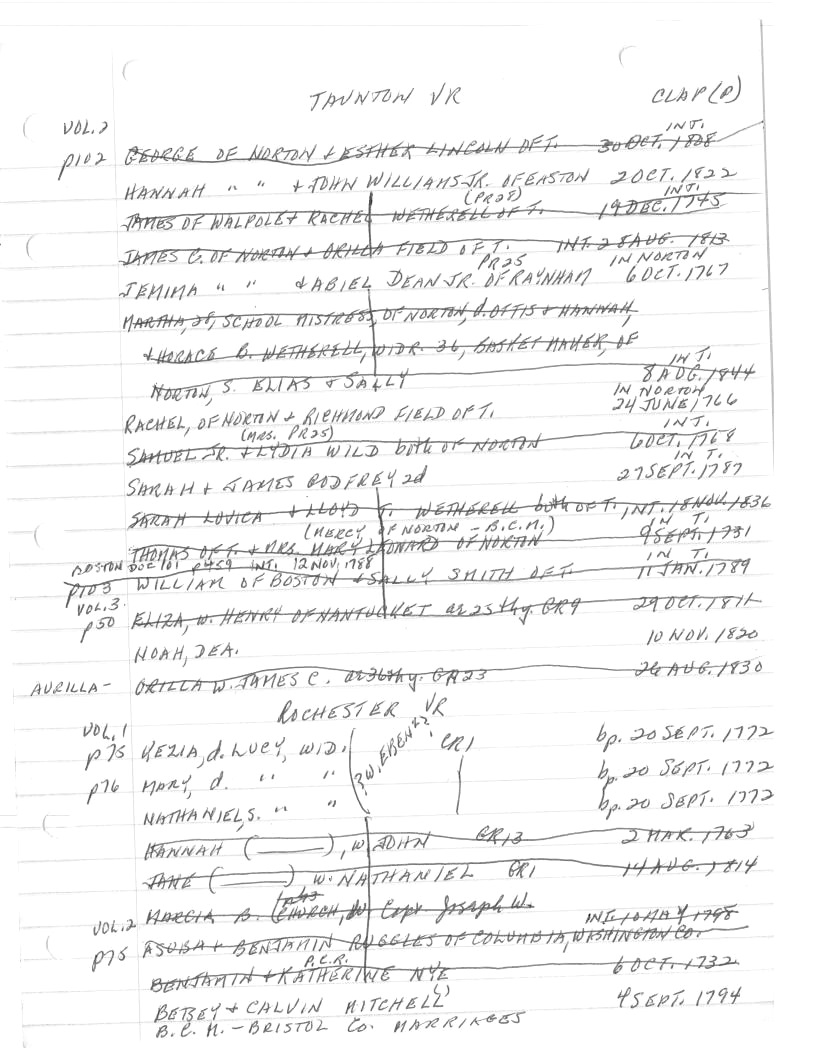 TAUNTON VR CLAP(P)
VOL. 2 INT.
p102 GEORGE OF NORTON & ESTHER LINCOLN OF T. 30 OCT. 1808
HANNAH " " & JOHN WILLIAMS JR. OF EASTON 2 OCT. 1822
(PR25) INT.
JAMES OF WALPOLE & RACHEL WETHERELL OF T. 19 DEC. 1745
JAMES C. OF NORTON & ORILLA FIELD OF T. INT. 28 AUG. 1813
PR25 IN NORTON
JEMIMA " " & ABIEL DEAN JR. OF RAYNHAM 6 OCT. 1767
MARTHA, 28, SCHOOL MISTRESS, OF NORTON, d. OTTIS & HANNAH,
& HORACE B. WETHERELL, WIDR. 36, BASKET MAKER, OF
INT.
NORTON, S. ELIAS & SALLY 8 AUG. 1844
IN NORTON
RACHEL, OF NORTON & RICHMOND FIELD OF T. 24 JUNE, 1766
(MRS. PR25) INT.
SAMUEL JR. & LYDIA WILD both OF NORTON 6 OCT. 1768
IN T.
SARAH & JAMES GODFREY 2d 27 SEPT. 1787
SARAH LOVICA & LLOYD T. WETHERELL both OF T. INT. 18 NOV. 1836
(MERCY, OF NORTON - B.C.M.) IN T.
THOMAS OF T. & MRS. MARY LEONARD OF NORTON 9 SEPT. 1731
BOSTON DOC 101 p459 INT. 12 NOV. 1788 IN T.
p103 WILLIAM OF BOSTON & SALLY SMITH OF T. 11 JAN. 1789
VOL. 3.
p50 ELIZA, W. HENRY OF NANTUCKET ae 25thy. GR9 29 OCT. 1811
NOAH, DEA. 10 NOV. 1820
AURILLA - ORILLA W. JAMES C. ae 36thy. GR23 26 AUG. 1830
ROCHESTER VR
VOL. 1
p75 KEZIA, d. LUCY, WID. (?W. EBEN22? CR1 bp. 20 SEPT. 1772
p76 MARY, d. " " bp. 20 SEPT. 1772
NATHANIEL, S. " " bp. 20 SEPT. 1772
HANNAH (———), W. JOHN GR13 2 MAR. 1763
JANE (———) W. NATHANIEL GR1 14 AUG. 1814
MARCIA B. (CHURCH, W. Capt Joseph W.
VOL. 2 INT. 10 MAY 1798
p75 ASUBA & BENJAMIN RUGGLES OF COLUMBIA, WASHINGTON CO.
P.C.R.
BENJAMIN & KATHERINE NYE 6 OCT. 1732
BETSEY & CALVIN MITCHELL 4 SEPT. 1794
B.C.M. - BRISTOL CO. MARRIAGES